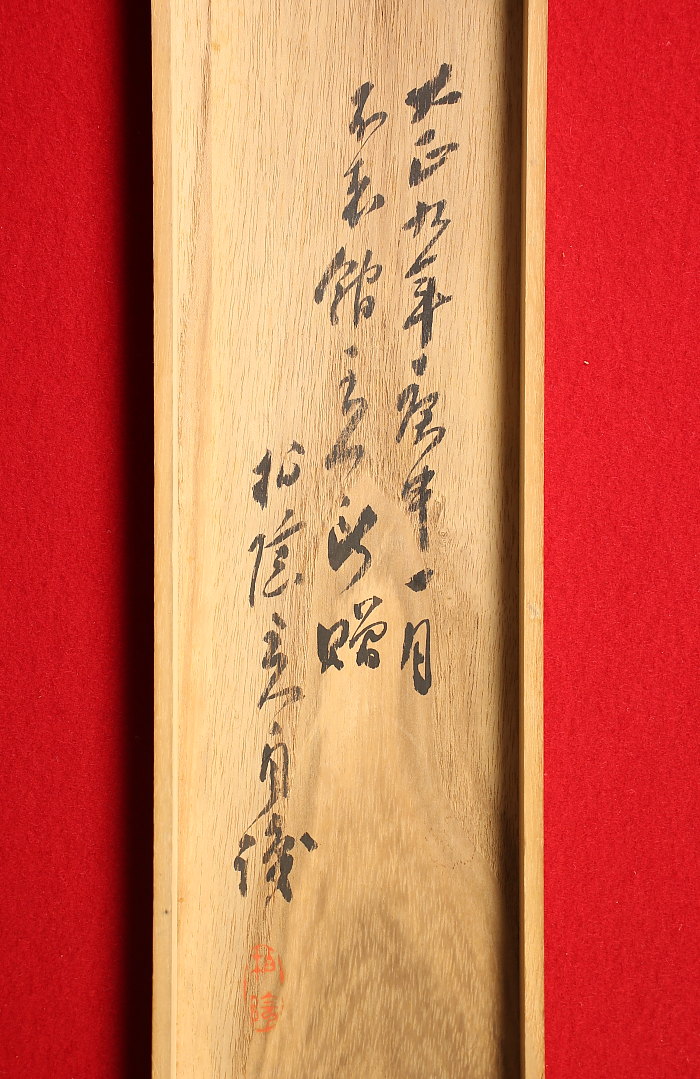 大正九年庚申一月
不館主人所贈
松陰主人自識